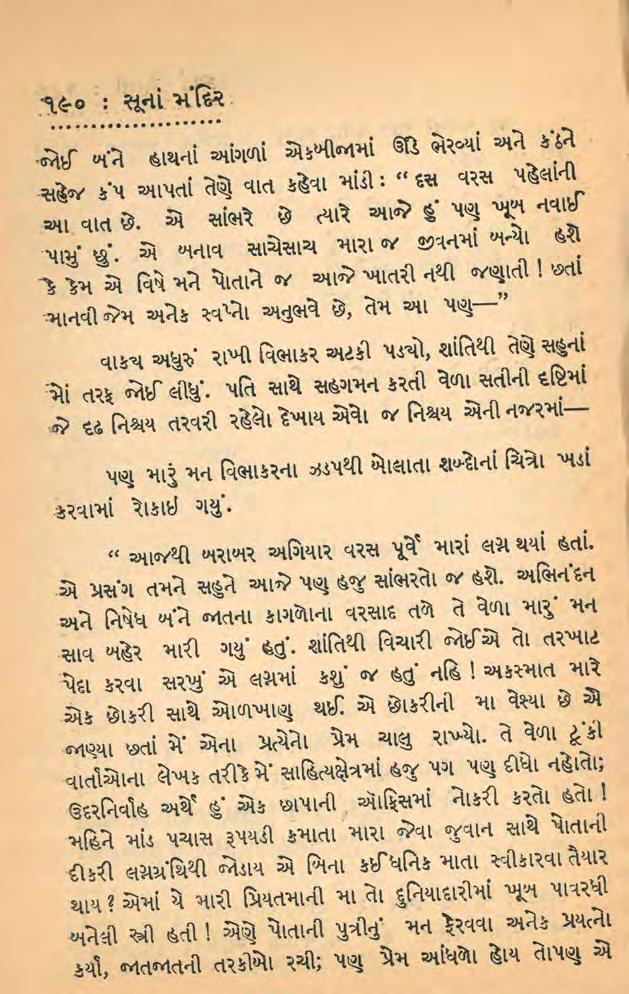 ૧૯૦ : સૂનાં મંદિર
જોઈ બંને હાથનાં આંગળાં એકબીજામાં ઊંડે ભેરવ્યાં અને કંઠને
સહેજ કંપ આપતાં તેણે વાત કહેવા માંડી : “ દસ વરસ પહેલાંની
આ વાત છે. એ સાંભરે છે ત્યારે આજે હું પણ ખૂબ નવાઈ
પામું છું. એ બનાવ સાચેસાચ મારા જ જીવનમાં બન્યો હશે
કે કેમ એ વિષે મને પોતાને જ આજે ખાતરી નથી જણાતી ! છતાં
માનવી જેમ અનેક સ્વપ્નો અનુભવે છે, તેમ આ પણ—”
વાક્ય અધુરું રાખી વિભાકર અટકી પડ્યો, શાંતિથી તેણે સહુનાં
મોં તરફ જોઈ લીધું. પતિ સાથે સહગમન કરતી વેળા સતીની દૃષ્ટિમાં
જે દૃઢ નિશ્ચય તરવરી રહેલો દેખાય એવો જ નિશ્ચય એની નજરમાં—
પણ મારું મન વિભાકરના ઝડપથી બોલાતા શબ્દોનાં ચિત્રો ખડાં
કરવામાં રોકાઇ ગયું.
“ આજથી બરાબર અગિયાર વરસ પૂર્વે મારાં લગ્ન થયાં હતાં.
એ પ્રસંગ તમને સહુને આજે પણ હજુ સાંભરતો જ હશે. અભિનંદન
અને નિષેધ બંને જાતના કાગળોના વરસાદ તળે તે વેળા મારું મન
સાવ બહેર મારી ગયું હતું. શાંતિથી વિચારી જોઈએ તો તરખાટ
પેદા કરવા સરખું એ લગ્નમાં કશું જ હતું નહિ ! અકસ્માત મારે
એક છોકરી સાથે ઓળખાણ થઈ. એ છોકરીની મા વેશ્યા છે એ
જાણ્યા છતાં મેં એના પ્રત્યેનો પ્રેમ ચાલુ રાખ્યો. તે વેળા ટૂંકી
વાર્તાઓના લેખક તરીકે મેં સાહિત્યક્ષેત્રમાં હજુ પગ પણ દીધો નહોતો;
ઉદરનિર્વાહ અર્થે હું એક છાપાની ઑફિસમાં નોકરી કરતો હતો !
મહિને માંડ પચાસ રૂપયડી કમાતા મારા જેવા જુવાન સાથે પોતાની
દીકરી લગ્નગ્રંથિથી જોડાય એ બિના કઈ ધનિક માતા સ્વીકારવા તૈયાર
થાય ? એમાં યે મારી પ્રિયતમાની મા તો દુનિયાદારીમાં ખૂબ પાવરધી
બનેલી સ્ત્રી હતી ! એણે પોતાની પુત્રીનું મન ફેરવવા અનેક પ્રયત્નો
કર્યા, જાતજાતની તરકીબો રચી; પણ પ્રેમ આંધળો હોય તોપણ એ